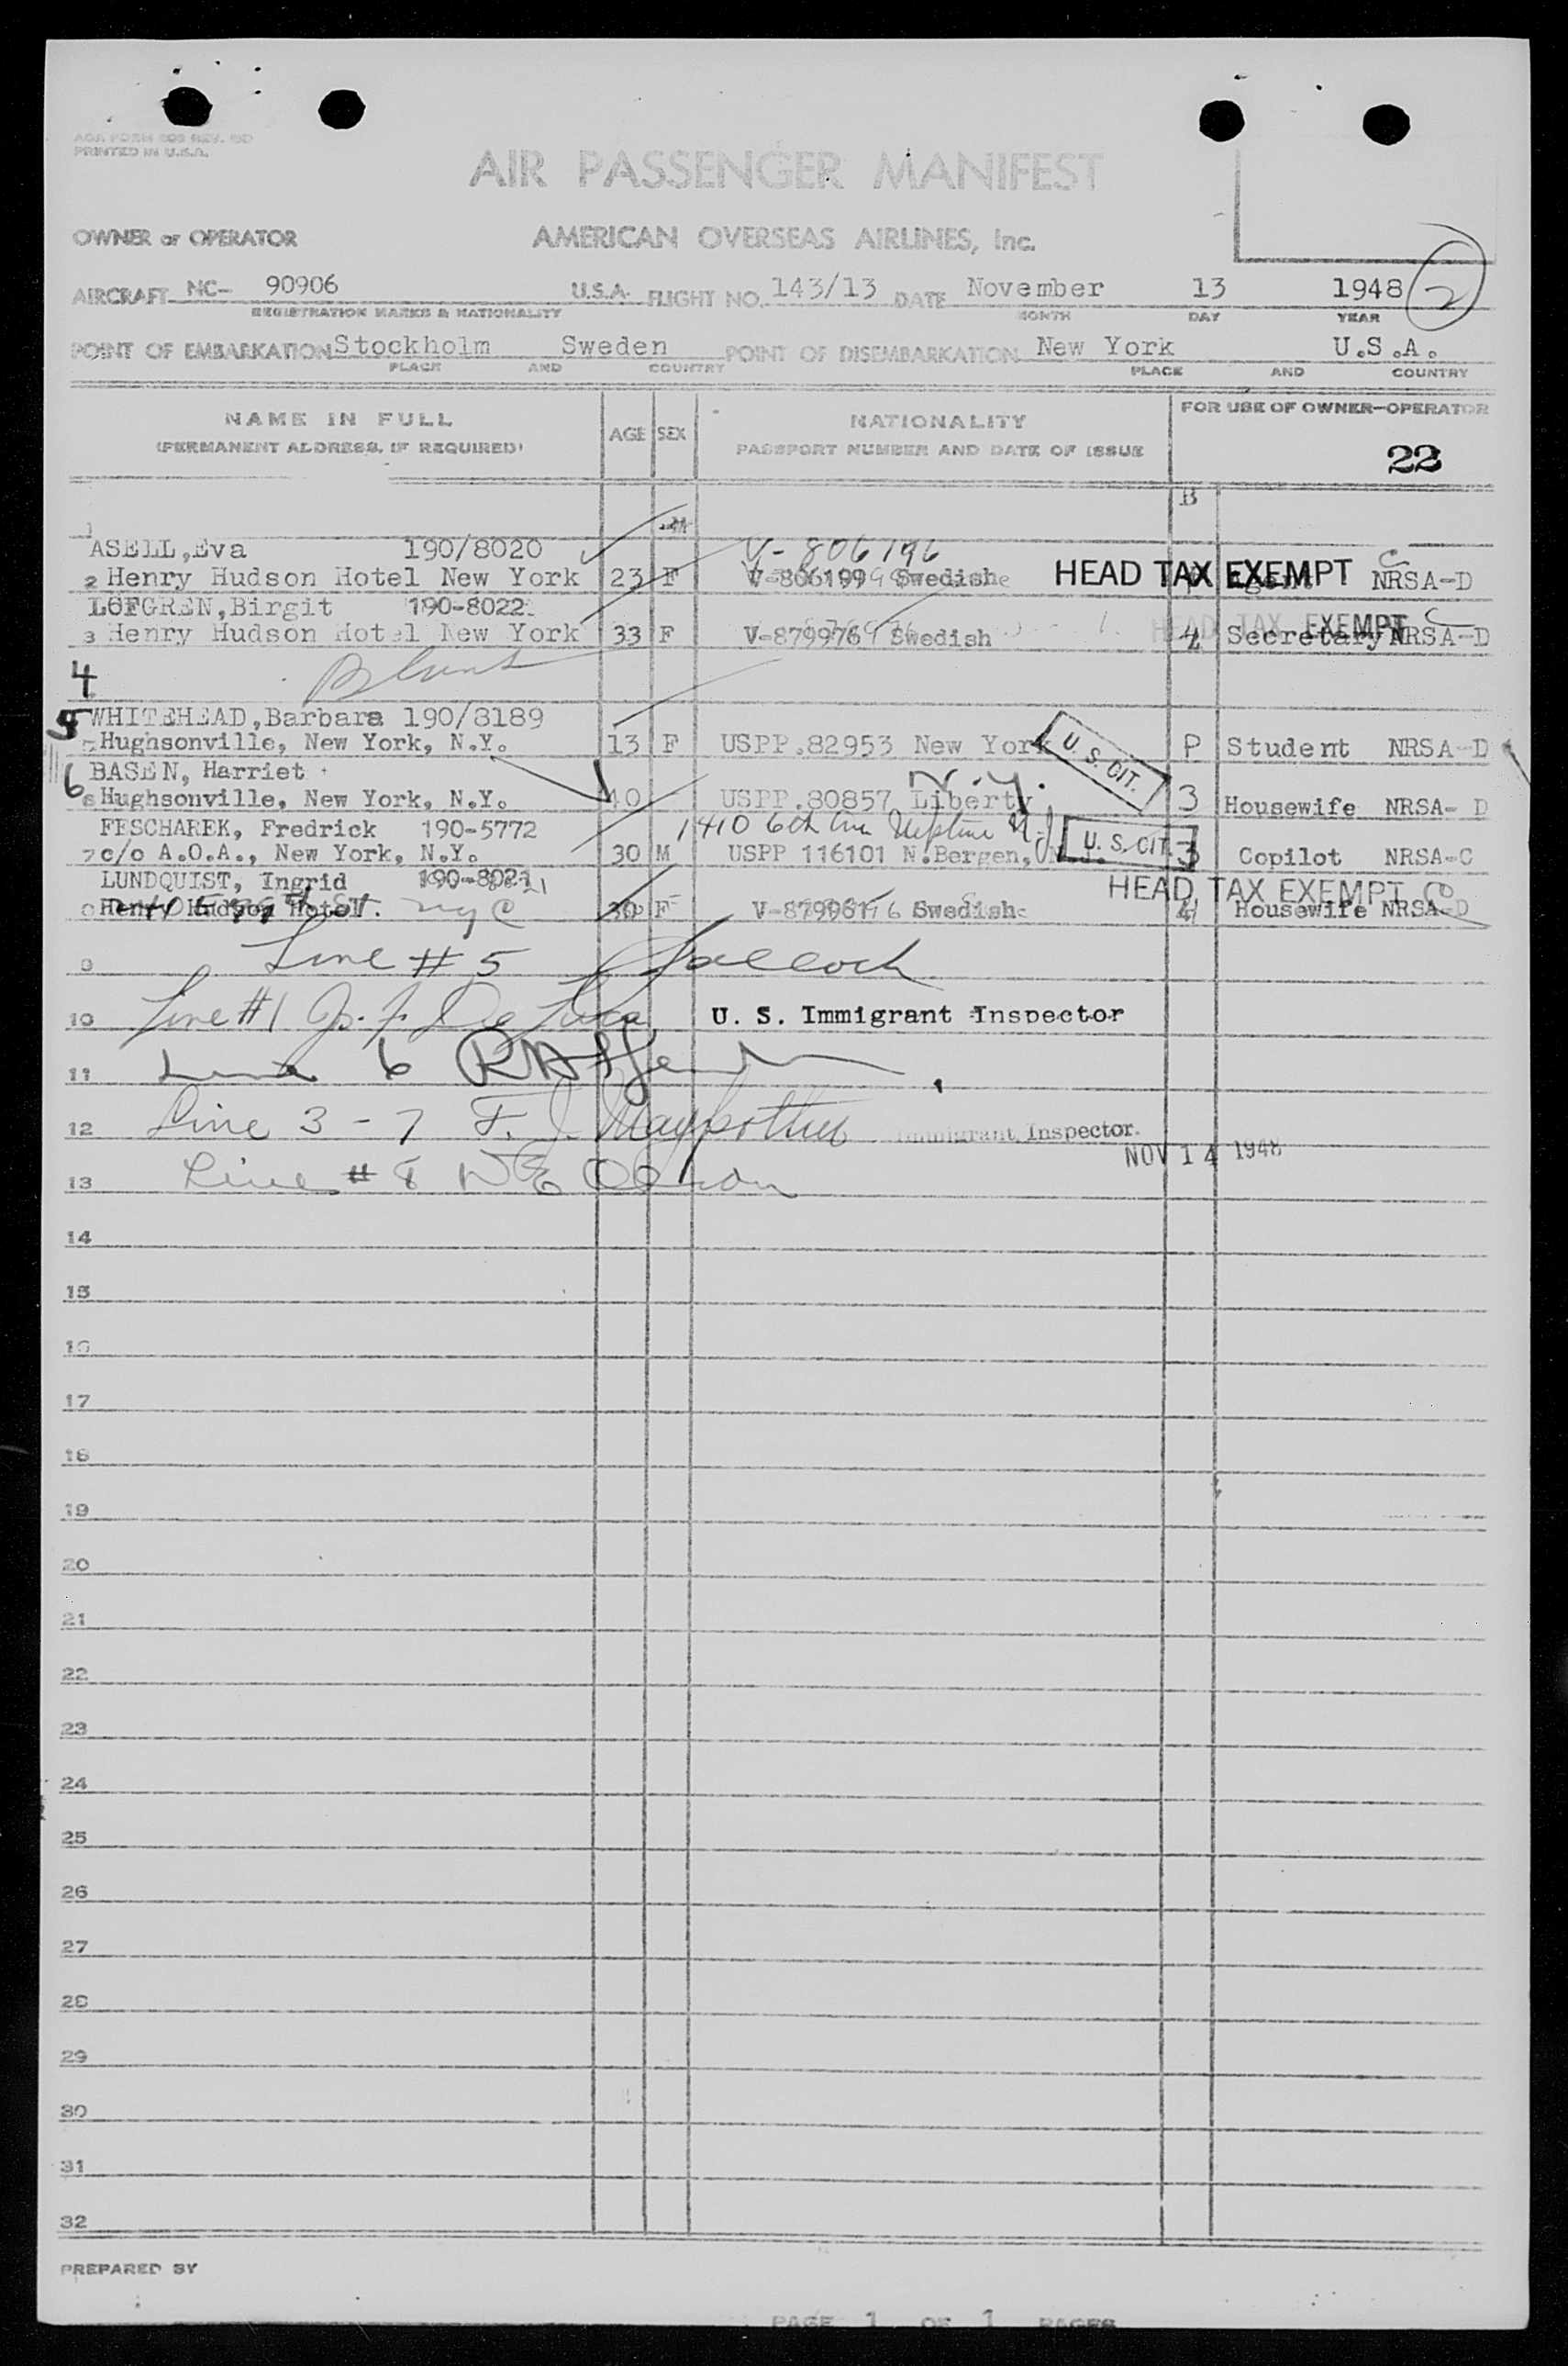 AOA FORM 609 REV.
PRINTED IN U.S.A.
AIR PASSENGER MANIFEST
OWNER or OPERATOR AMERICAN OVERSEAS AIRLINES, Inc.
AIRCRAFT NC- 90906 U.S.A. FLIGHT NO. 143/13 DATE November 13 1948 2
REGISTRATION MARKS & NATIONALITY MONTH DAY YEAR
POINT OF EMBARKATION Stockholm Sweden POINT OF DISEMBARKATION New York U.S.A.
PLACE AND COUNTRY PLACE AND COUNTRY
NAME IN FULL AGE SEX NATIONALITY FOR USE OF OWNER-OPERATOR
(PERMANENT ADDRESS, IF REQUIRED) PASSPORT NUMBER AND DATE OF ISSUE
22
B
1
ASELL,Eva 190/8020 V-806196
2 Henry Hudson Hotel New York 23 F V-806199 Swedish HEAD TAX EXEMPT C NRSA-D
LOFGREN,Birgit 190-8022 HEAD TAX EXEMPT C
3 Henry Hudson Hotel New York 33 F V-879976 Swedish 4 Secretary NRSA-D
4 Blank
5 WHITEHEAD,Barbara 190/8189
Hughsonville, New York, N.Y. 13 F USPP.82953 New York U. S. CIT. P Student NRSA-D
6 BASEN, Harriet N.Y.
6 Hughsonville, New York, N.Y. 40 USPP.80857 Liberty 3 Housewife NRSA- D
FESCHAREK, Fredrick 190-5772 1410 6th Ave Neptune N.J.
7 c/o A.O.A., New York, N.Y. 30 M USPP 116101 N.Bergen, N.J. U. S. CIT. 3 Copilot NRSA-C
LUNDQUIST, Ingrid 190-8021 HEAD TAX EXEMPT
Henry Hudson Hotel. NYC 30 F Swedish 4 Housewife NRSA-D
9 Line # 5
10 Line #1 U. S. Immigrant Inspector
11 Line 6
12 Line 3 - 7 F. J. Immigrant Inspector.
NOV 14 1948
13 Line # 8
14
15
16
17
18
19
20
21
22
23
24
25
26
27
28
29
30
31
32
PREPARED BY
PAGE 1 OF 1 PAGES